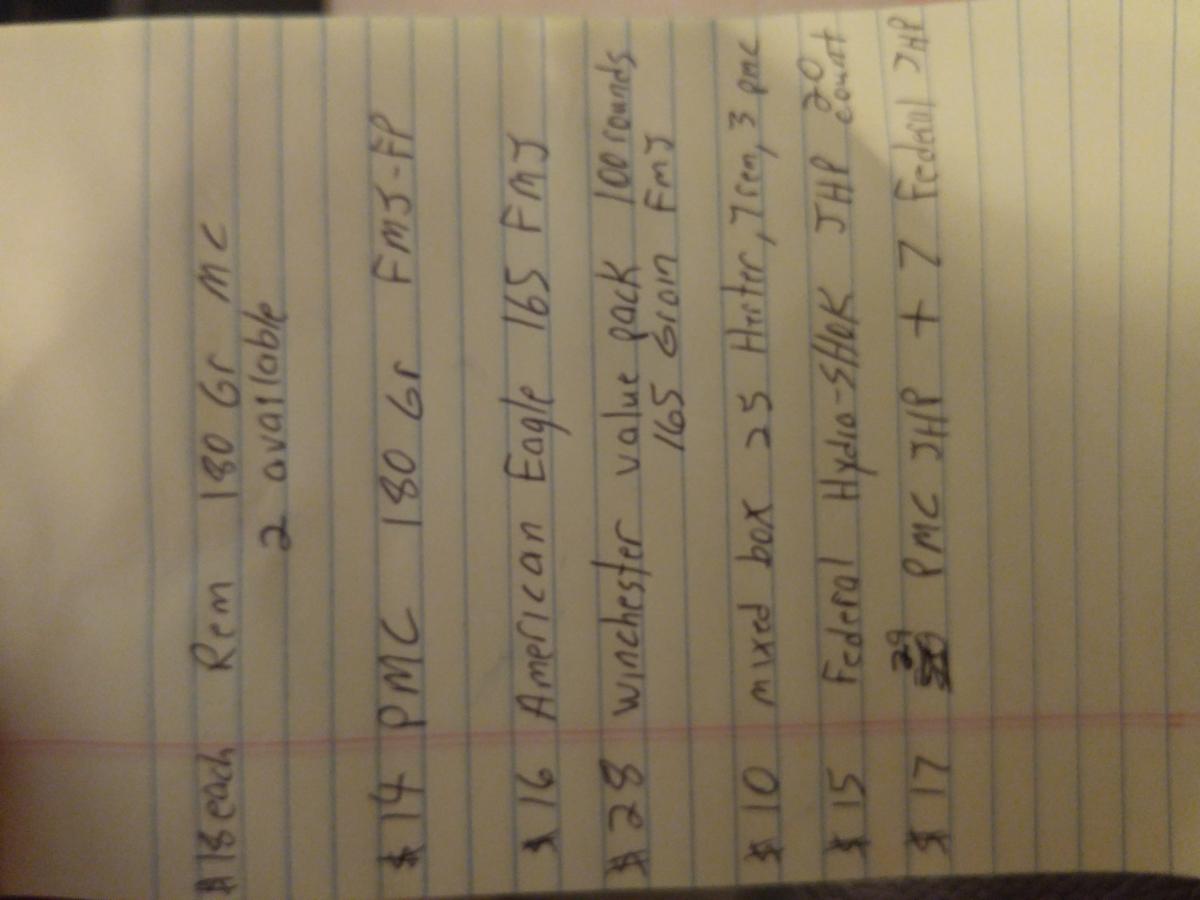 $18 each Rem 180 Gr MC
2 available
$14 PMC 180 Gr FMJ-FP
$16 American Eagle 165 FMJ
$28 winchester value pack 100 rounds
165 Grain FMJ
$10 mixed box 25 Herter, 7 rem, 3 pmc
$15 Federal Hydra-SHOK JHP 20 count
$17 29 PMC JHP + 7 Federal JHP